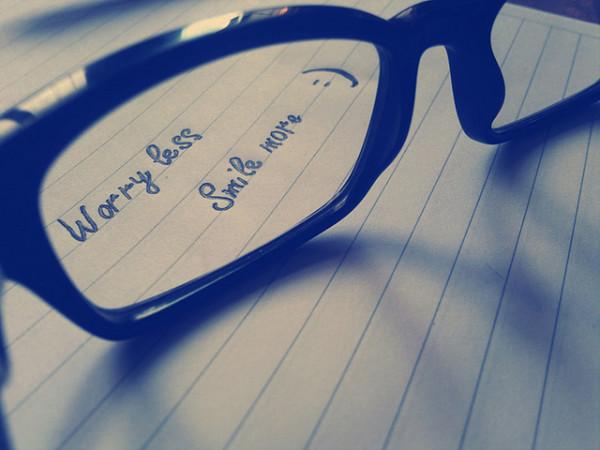 Worry less
Smile more
:)